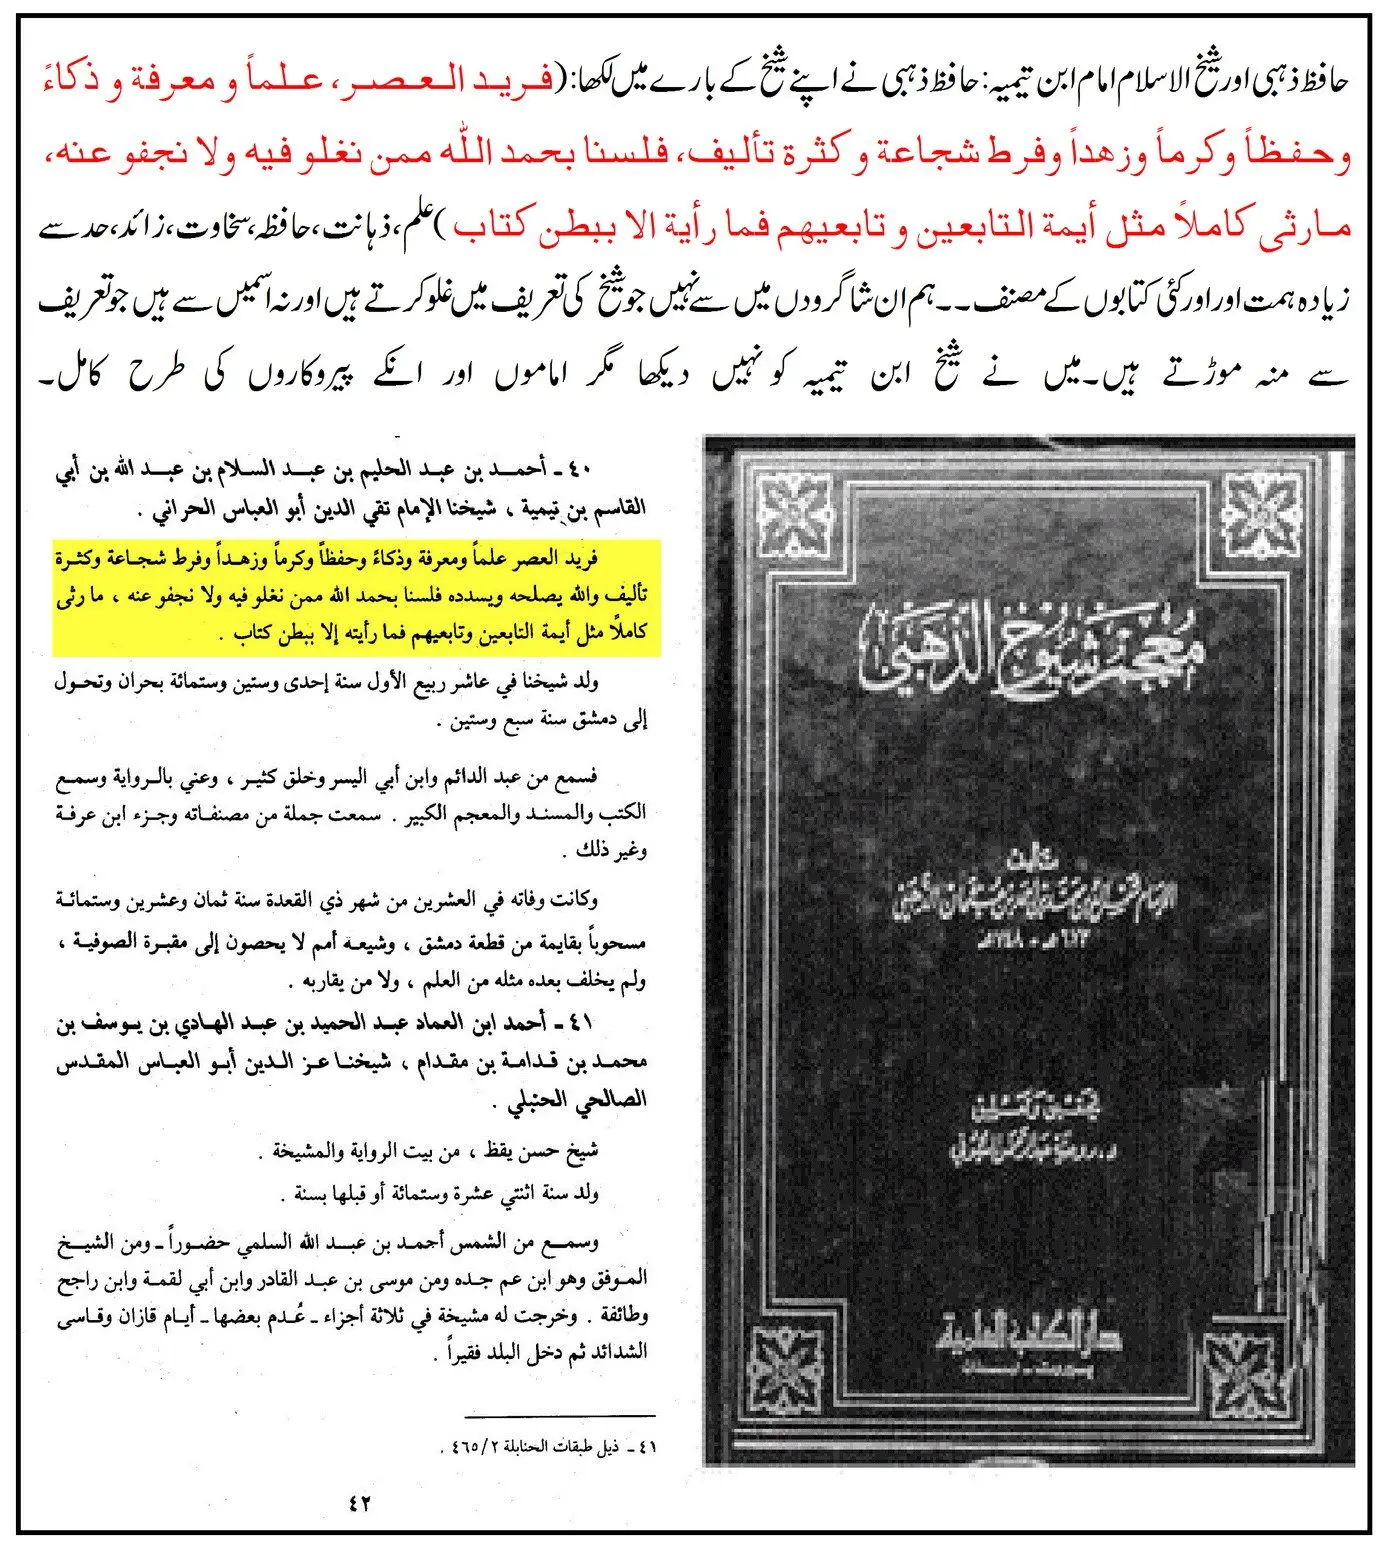 حافظ ذہبی اور شیخ الاسلام امام ابن تیمیہ: حافظ ذہبی نے اپنے شیخ کے بارے میں لکھا: (فريد العصر، علماً و معرفة و ذكاءً
وحفظاً وكرماً وزهداً وفرط شجاعة و كثرة تأليف، فلسنا بحمد الله ممن نغلو فيه ولا نجفو عنه،
مارئى كاملاً مثل أيمة التابعين و تابعيهم فما رأية الا ببطن كتاب) علم، ذہانت، حافظہ، سخاوت، زائد، حد سے
زیادہ ہمت اور اور کئی کتابوں کے مصنف۔۔ ہم ان شاگرودں میں سے نہیں جو شیخ کی تعریف میں غلو کرتے ہیں اور نہ اسمیں سے ہیں جو تعریف
سے منہ موڑتے ہیں۔ میں نے شیخ ابن تیمیہ کو نہیں دیکھا مگر اماموں اور انکے پیروکاروں کی طرح کامل۔
٤٠ ـ أحمد بن عبد الحليم بن عبد السلام بن عبد الله بن أبي
القاسم بن تيمية ، شيخنا الإمام تقي الدين أبو العباس الحراني .
فريد العصر علماً ومعرفة وذكاءً وحفظاً وكرماً وزهداً وفرط شجاعة وكثرة
تأليف والله يصلحه ويسدده فلسنا بحمد الله ممن نغلو فيه ولا نجفو عنه ، ما رئى
كاملًا مثل أيمة التابعين وتابعيهم فما رأيته إلا ببطن كتاب .
ولد شيخنا في عاشر ربيع الأول سنة إحدى وستين وستمائة بحران وتحول
إلى دمشق سنة سبع وستين .
فسمع من عبد الدائم وابن أبي اليسر وخلق كثير ، وعني بالرواية وسمع
الكتب والمسند والمعجم الكبير . سمعت جملة من مصنفاته وجزء ابن عرفة
وغير ذلك .
وكانت وفاته في العشرين من شهر ذي القعدة سنة ثمان وعشرين وستمائة
مسحوباً بقايمة من قطعة دمشق ، وشيعه أمم لا يحصون إلى مقبرة الصوفية ،
ولم يخلف بعده مثله من العلم ، ولا من يقاربه .
٤١ ـ أحمد ابن العماد عبد الحميد بن عبد الهادي بن يوسف بن
محمد بن قدامة بن مقدام ، شيخنا عز الدين أبو العباس المقدس
الصالحي الحنبلي .
شيخ حسن يقظ ، من بيت الرواية والمشيخة .
ولد سنة اثنتي عشرة وستمائة أو قبلها بسنة .
وسمع من الشمس أحمد بن عبد الله السلمي حضوراً ـ ومن الشيخ
الموفق وهو ابن عم جده ومن موسى بن عبد القادر وابن أبي لقمة وابن راجح
وطائفة . وخرجت له مشيخة في ثلاثة أجزاء ـ عُدم بعضها ـ أيام قازان وقاسى
الشدائد ثم دخل البلد فقيراً .
٤١ ـ ذيل طبقات الحنابلة ٢/ ٤٦٥ .
٤٢
معجم شيوخ الذهبي
تأليف
الإمام شمس الدين محمد بن أحمد بن عثمان الذهبي
٦٧٣هـ - ٧٤٨هـ
تحقيق وتعليق
د. روحية عبد الرحمن السيوفي
دار الكتب العلمية
بيروت - لبنان